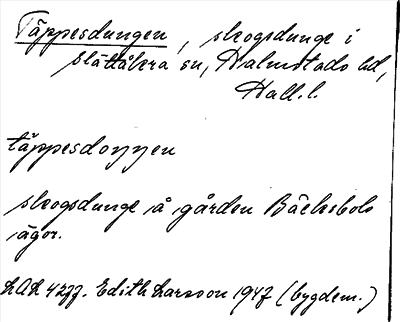 Täppesdungen, skogsdunge i
Slättåkra sn, Halmstads hd,
Hall. l.
täppesdoŋŋen
skogsdunge å gården Bäcksbols
ägor.
Edith Larsson 1947 (bygdem.)